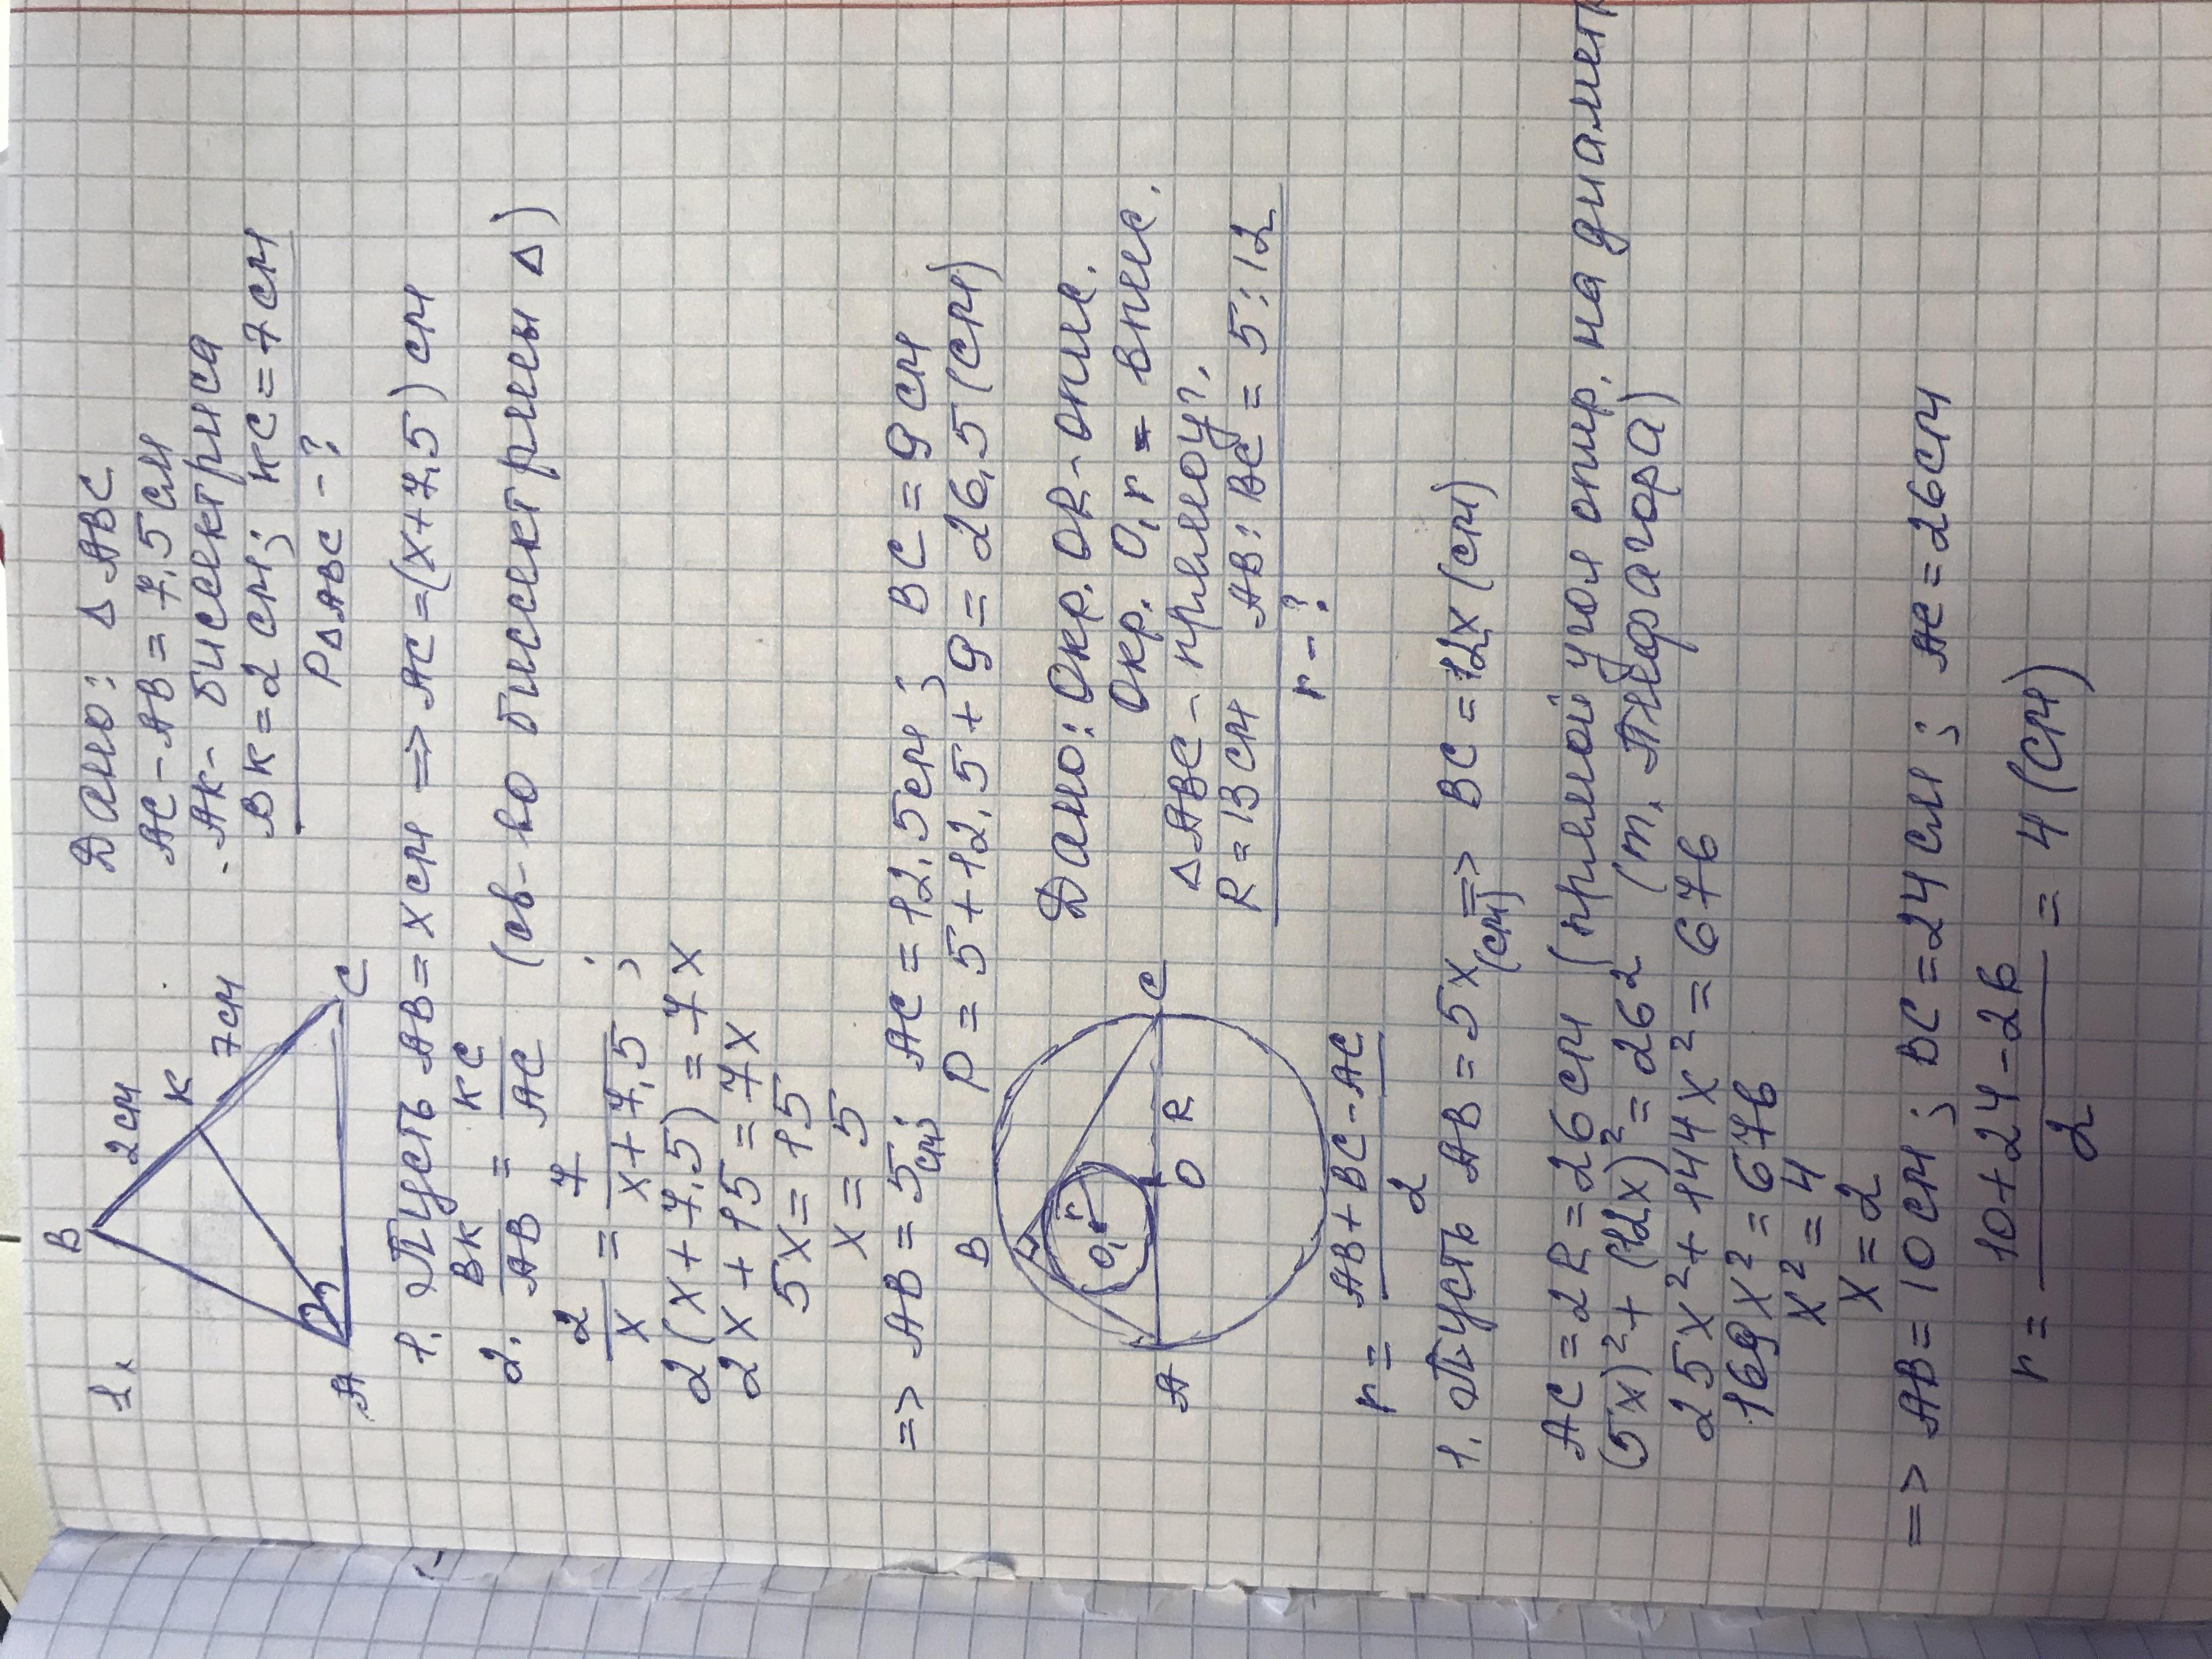 1.
B
2см
K
7см
A
C
Дано: Δ ABC
AC - AB = 7,5 см
AK - биссектриса
BK = 2 см; KC = 7 см
PΔABC - ?
1. Пусть AB = x см => AC = (x+7,5) см
2. BK/AB = KC/AC (св-во биссектрисы Δ)
2/x = 7/x+7,5 ;
2(x+7,5) = 7x
2x + 15 = 7x
5x = 15
x = 5
=> AB = 5 см; AC = 12,5 см; BC = 9 см
P = 5 + 12,5 + 9 = 26,5 (см)
B
O₁ r
A
O
R
C
Дано: Окр. OR - опис.
Окр. O₁r = впис.
Δ ABC - прямоуг.
R = 13 см AB : BC = 5 : 12
r - ?
r = AB + BC - AC / 2
1. Пусть AB = 5x (см) => BC = 12x (см)
AC = 2R = 26 см (прямой угол опир. на диаметр
(5x)² + (12x)² = 26² (т. Пифагора)
25x² + 144x² = 676
169x² = 676
x² = 4
x = 2
=> AB = 10 см ; BC = 24 см ; AC = 26 см
r = 10 + 24 - 26 / 2 = 4 (см)